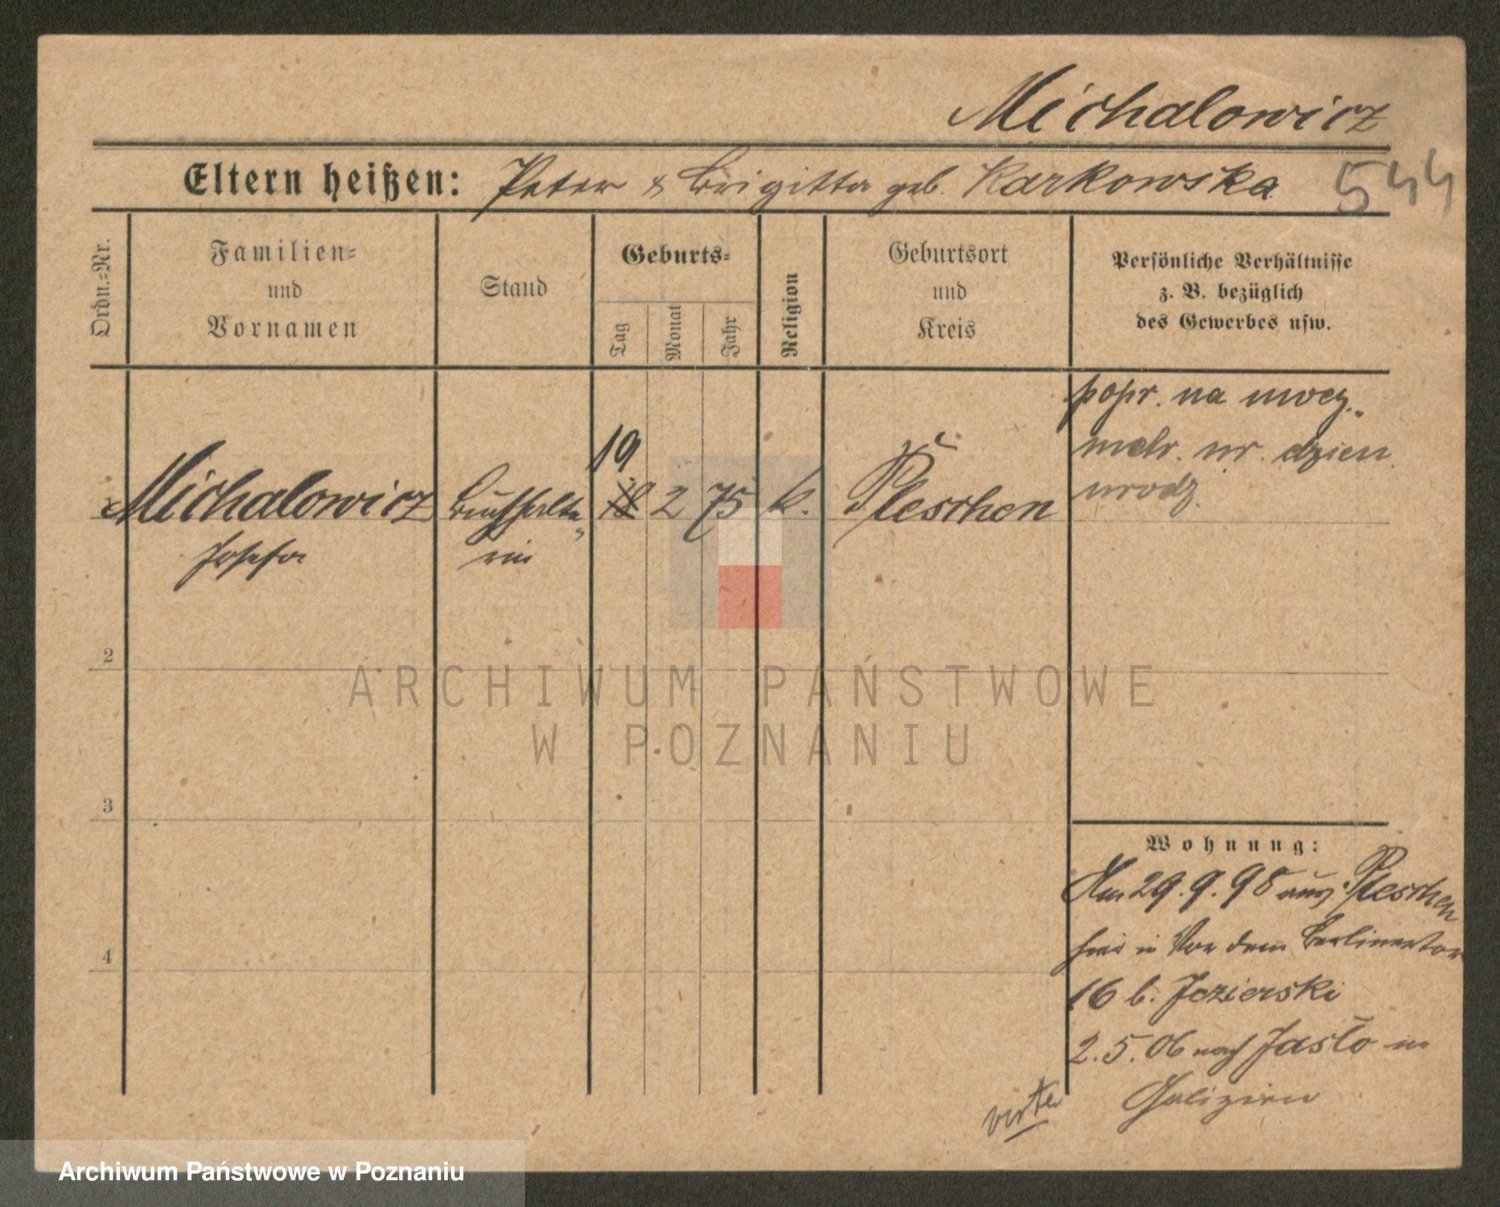 Michalowicz
Eltern heißen: Peter & Brigitta geb. Karkowska
544
Ordn.-Nr.
Familien-
und
Vornamen
Stand
Geburts-
Tag
Monat
Jahr
Religion
Geburtsort
und
Kreis
Persönliche Verhältnisse
z. B. bezüglich
des Gewerbes usw.
popr. na
metr. ur. dzien
urodz.
19
Michalowicz Buchhalte- 18 2 75 k. Pleschen
Josefa rin
2
ARCHIWUM PAŃSTWOWE
W POZNANIU
3
Wohnung:
Am 29.9.98 aus Pleschen
hier in Vor dem Berlinertor
4
16 b. Jezierski
2.5.06 nach Jasło in
Galizien
Archiwum Państwowe w Poznaniu